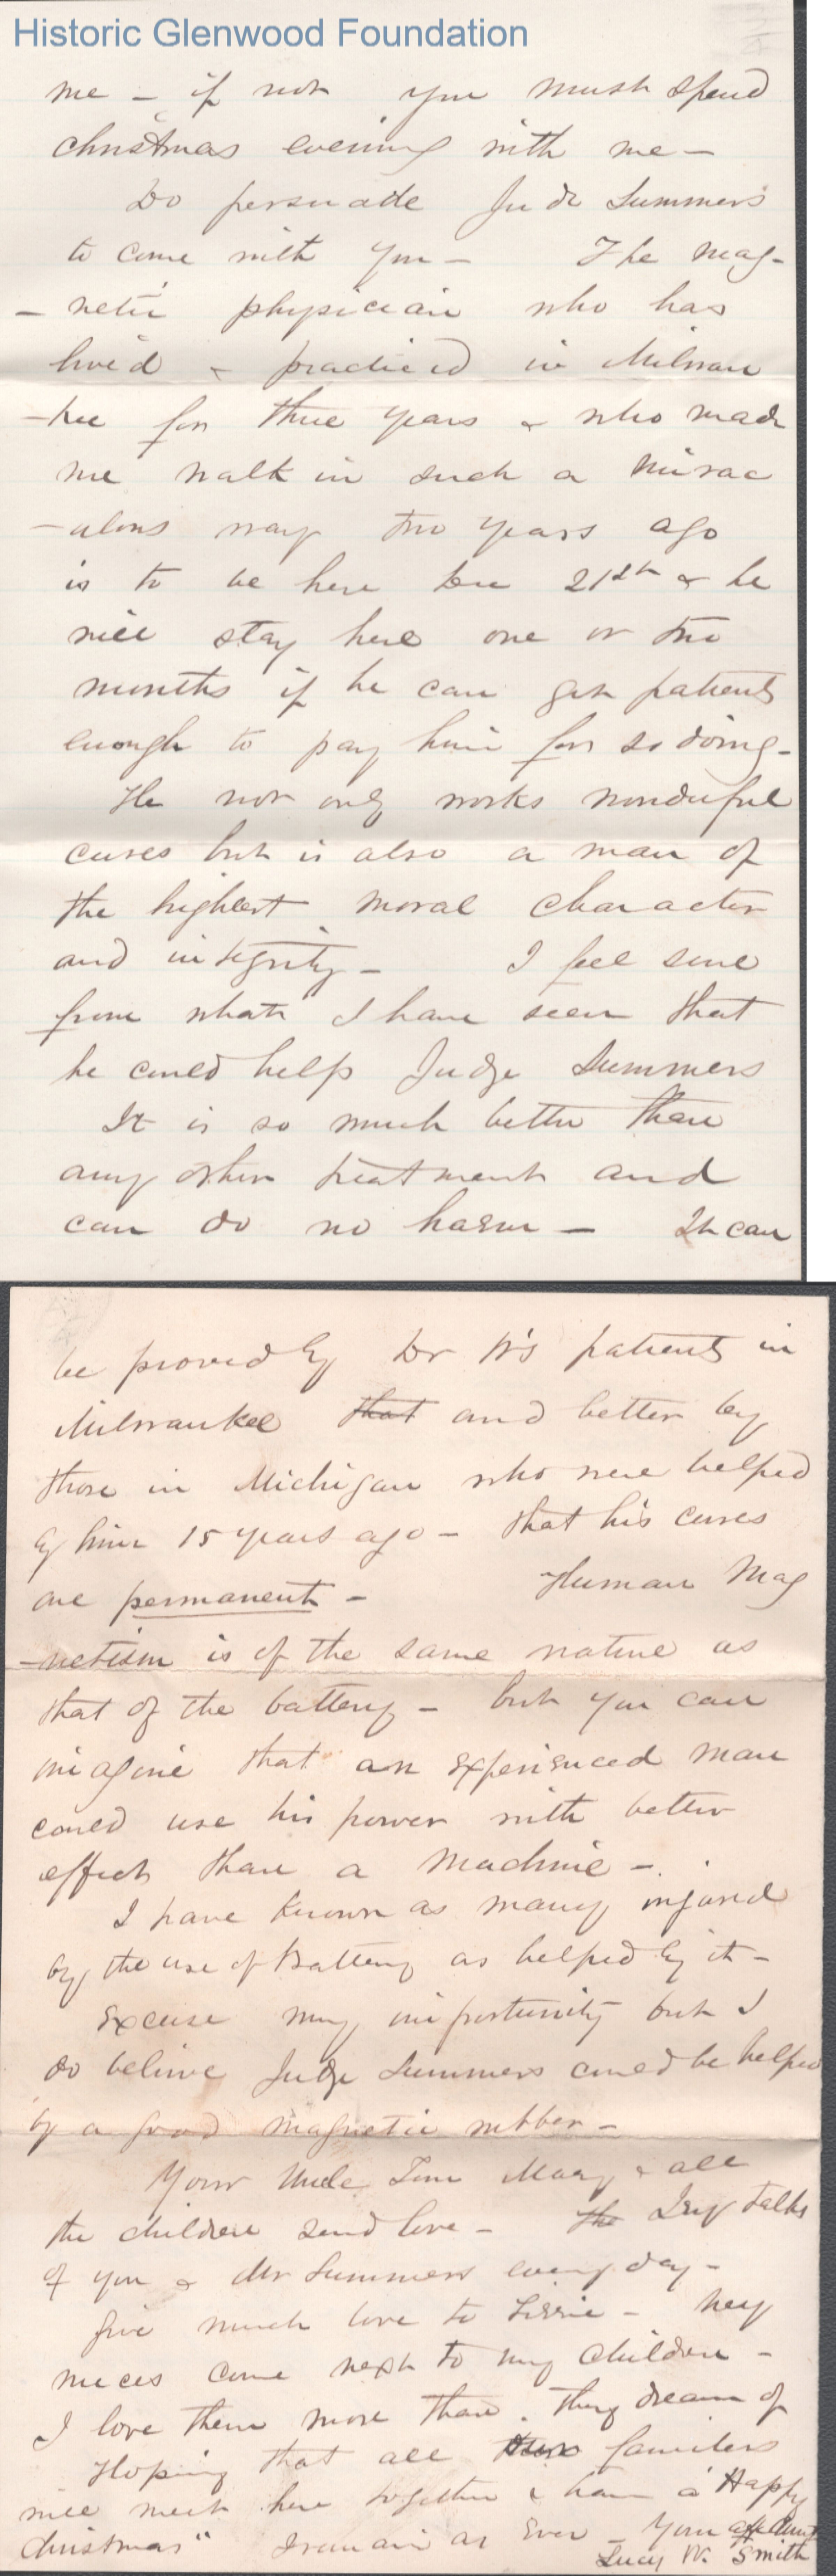 Historic Glenwood Foundation
me – if not you must spend
christmas evening with me –
Do persuade Judge Summers
to come with you – The mag-
– netic physician who has
lived & practiced in Milwau
– kee for three years & who made
me walk in such a mirac
– ulous way two years ago
is to be here Dec 21st & he
will stay here one or two
months if he can get patients
enough to pay him for so doing –
He not only works wonderful
cures but is also a man of
the highest moral character
and integrity – I feel sure
from what I have seen that
he could help Judge Summers
It is so much better than
any other treatment and
can do no harm – It can
be proved by Dr W's patients in
Milwaukee that and better by
those in Michigan who were helped
by him 15 years ago – that his cures
are permanent – Human Mag
– netism is of the same nature as
that of the battery – but you can
imagine that an experienced man
could use his power with better
effect than a machine –
I have known as many injured
by the use of Battery as helped by it –
Excuse my importunity but I
do believe Judge Summers could be helped
by a good magnetic rubber –
Your Uncle Tom Mary & all
the children send love – The talks
of you & Mr Summers every day –
Give much love to Lizzie – My
nieces come next to my children –
I love them more than they dream of
Hoping that all families
will meet here together & have a "Happy
Christmas" I remain as Ever – Your aff Aunt
Lucy W. Smith